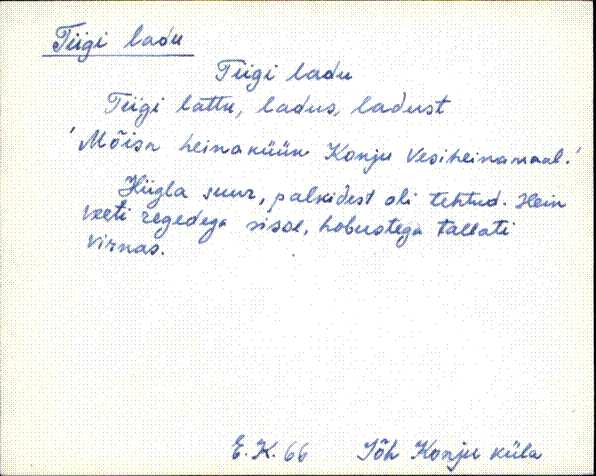 Tiigi ladu
Tiigi ladu
Tiigi lattu, ladus, ladust
'Mõisa heinaküün Konju Vesiheinamaal.'
Hiigla suur, palkidest oli tehtud. Hein
veeti regedega sisse, hobustega tallati
virnas.
E.K. 66 Jõh Konju küla